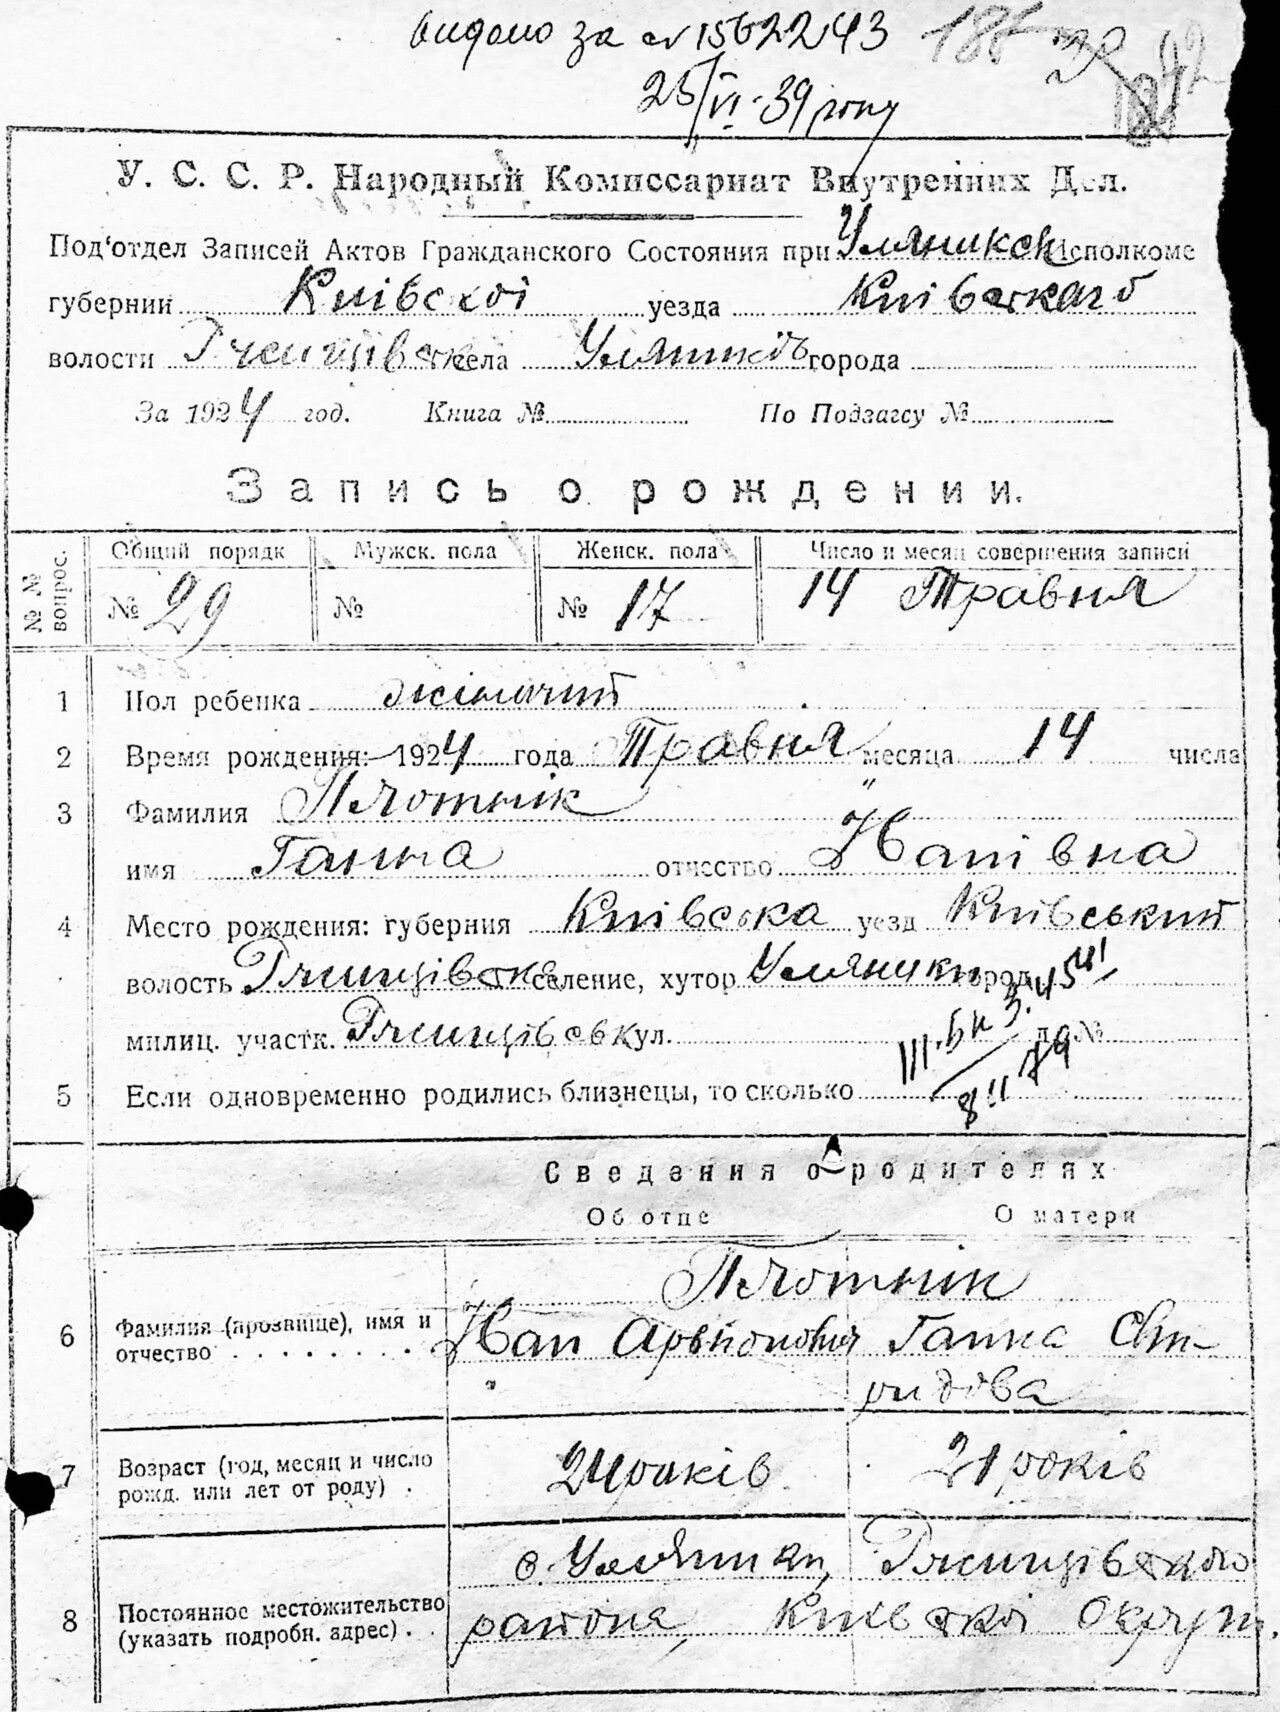 видано за 1562243
25/VI-39 року
У. С. С. Р. Народный Комиссариат Внутренних Дел.
Под‘отдел Записей Актов Гражданского Состояния при Уляникск Исполкоме
губернии Київскої уезда Київскаго
волости Ржищівск села Уляників города
За 1924 год. Книга № По Подзагсу №
Запись о рождении.
№ № вопрос.
Общий порядк Мужск. пола Женск. пола Число и месяц совершения записи
№ 29 № № 17 14 Травня
1 Пол ребенка жіночий
2 Время рождения: 1924 года Травня месяца 14 числа
3 Фамилия Плотнік
имя Ганна отчество Йанівна
4 Место рождения: губерния Київська уезд Київський
волость Ржищівска селение, хутор Уляники город
милиц. участк. Ржищівськ ул. №
5 Если одновременно родились близнецы, то сколько
Сведения о родителях
Об отце О матери
Плотнік
6 Фамилия (прозвище), имя и Йан Ганна Спи-
отчество ридова
7 Возраст (год, месяц и число 24 років 21 років
рожд. или лет от роду) .
с. Уляники, Ржищівского
8 Постоянное местожительство района, Київскої Округи.
(указать подробн. адрес) .